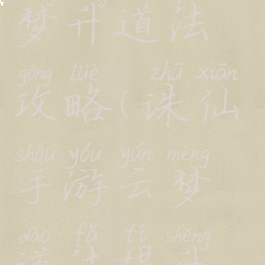 梦升道法
gōng lüè zhū xiān
攻略(诛仙
shǒu yóu yún mèng
手游云梦
dào fǎ tí shēng
道法提升